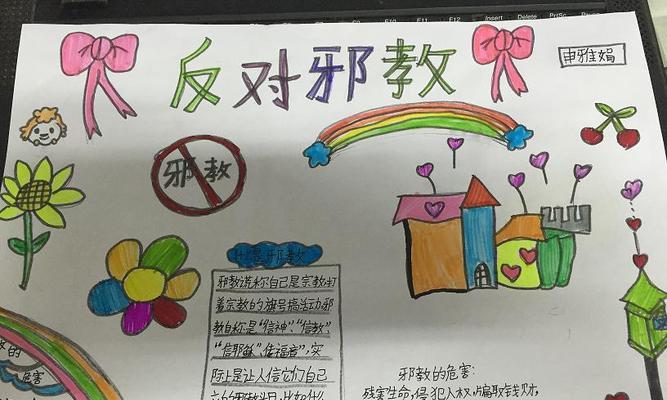 F10 F11 F12 Insert Delete PrtSc Pause
反对邪教
申雅娟
邪教
什么是邪教
邪教谎称自己是宗教,打
着宗教的旗号搞活动,邪
教自称是“信神”、“信教”、
“信耶稣”、信福音”,实
际上是让人信它们自己
邪教的危害:
残害生命,侵犯人权,骗取钱财,
危害